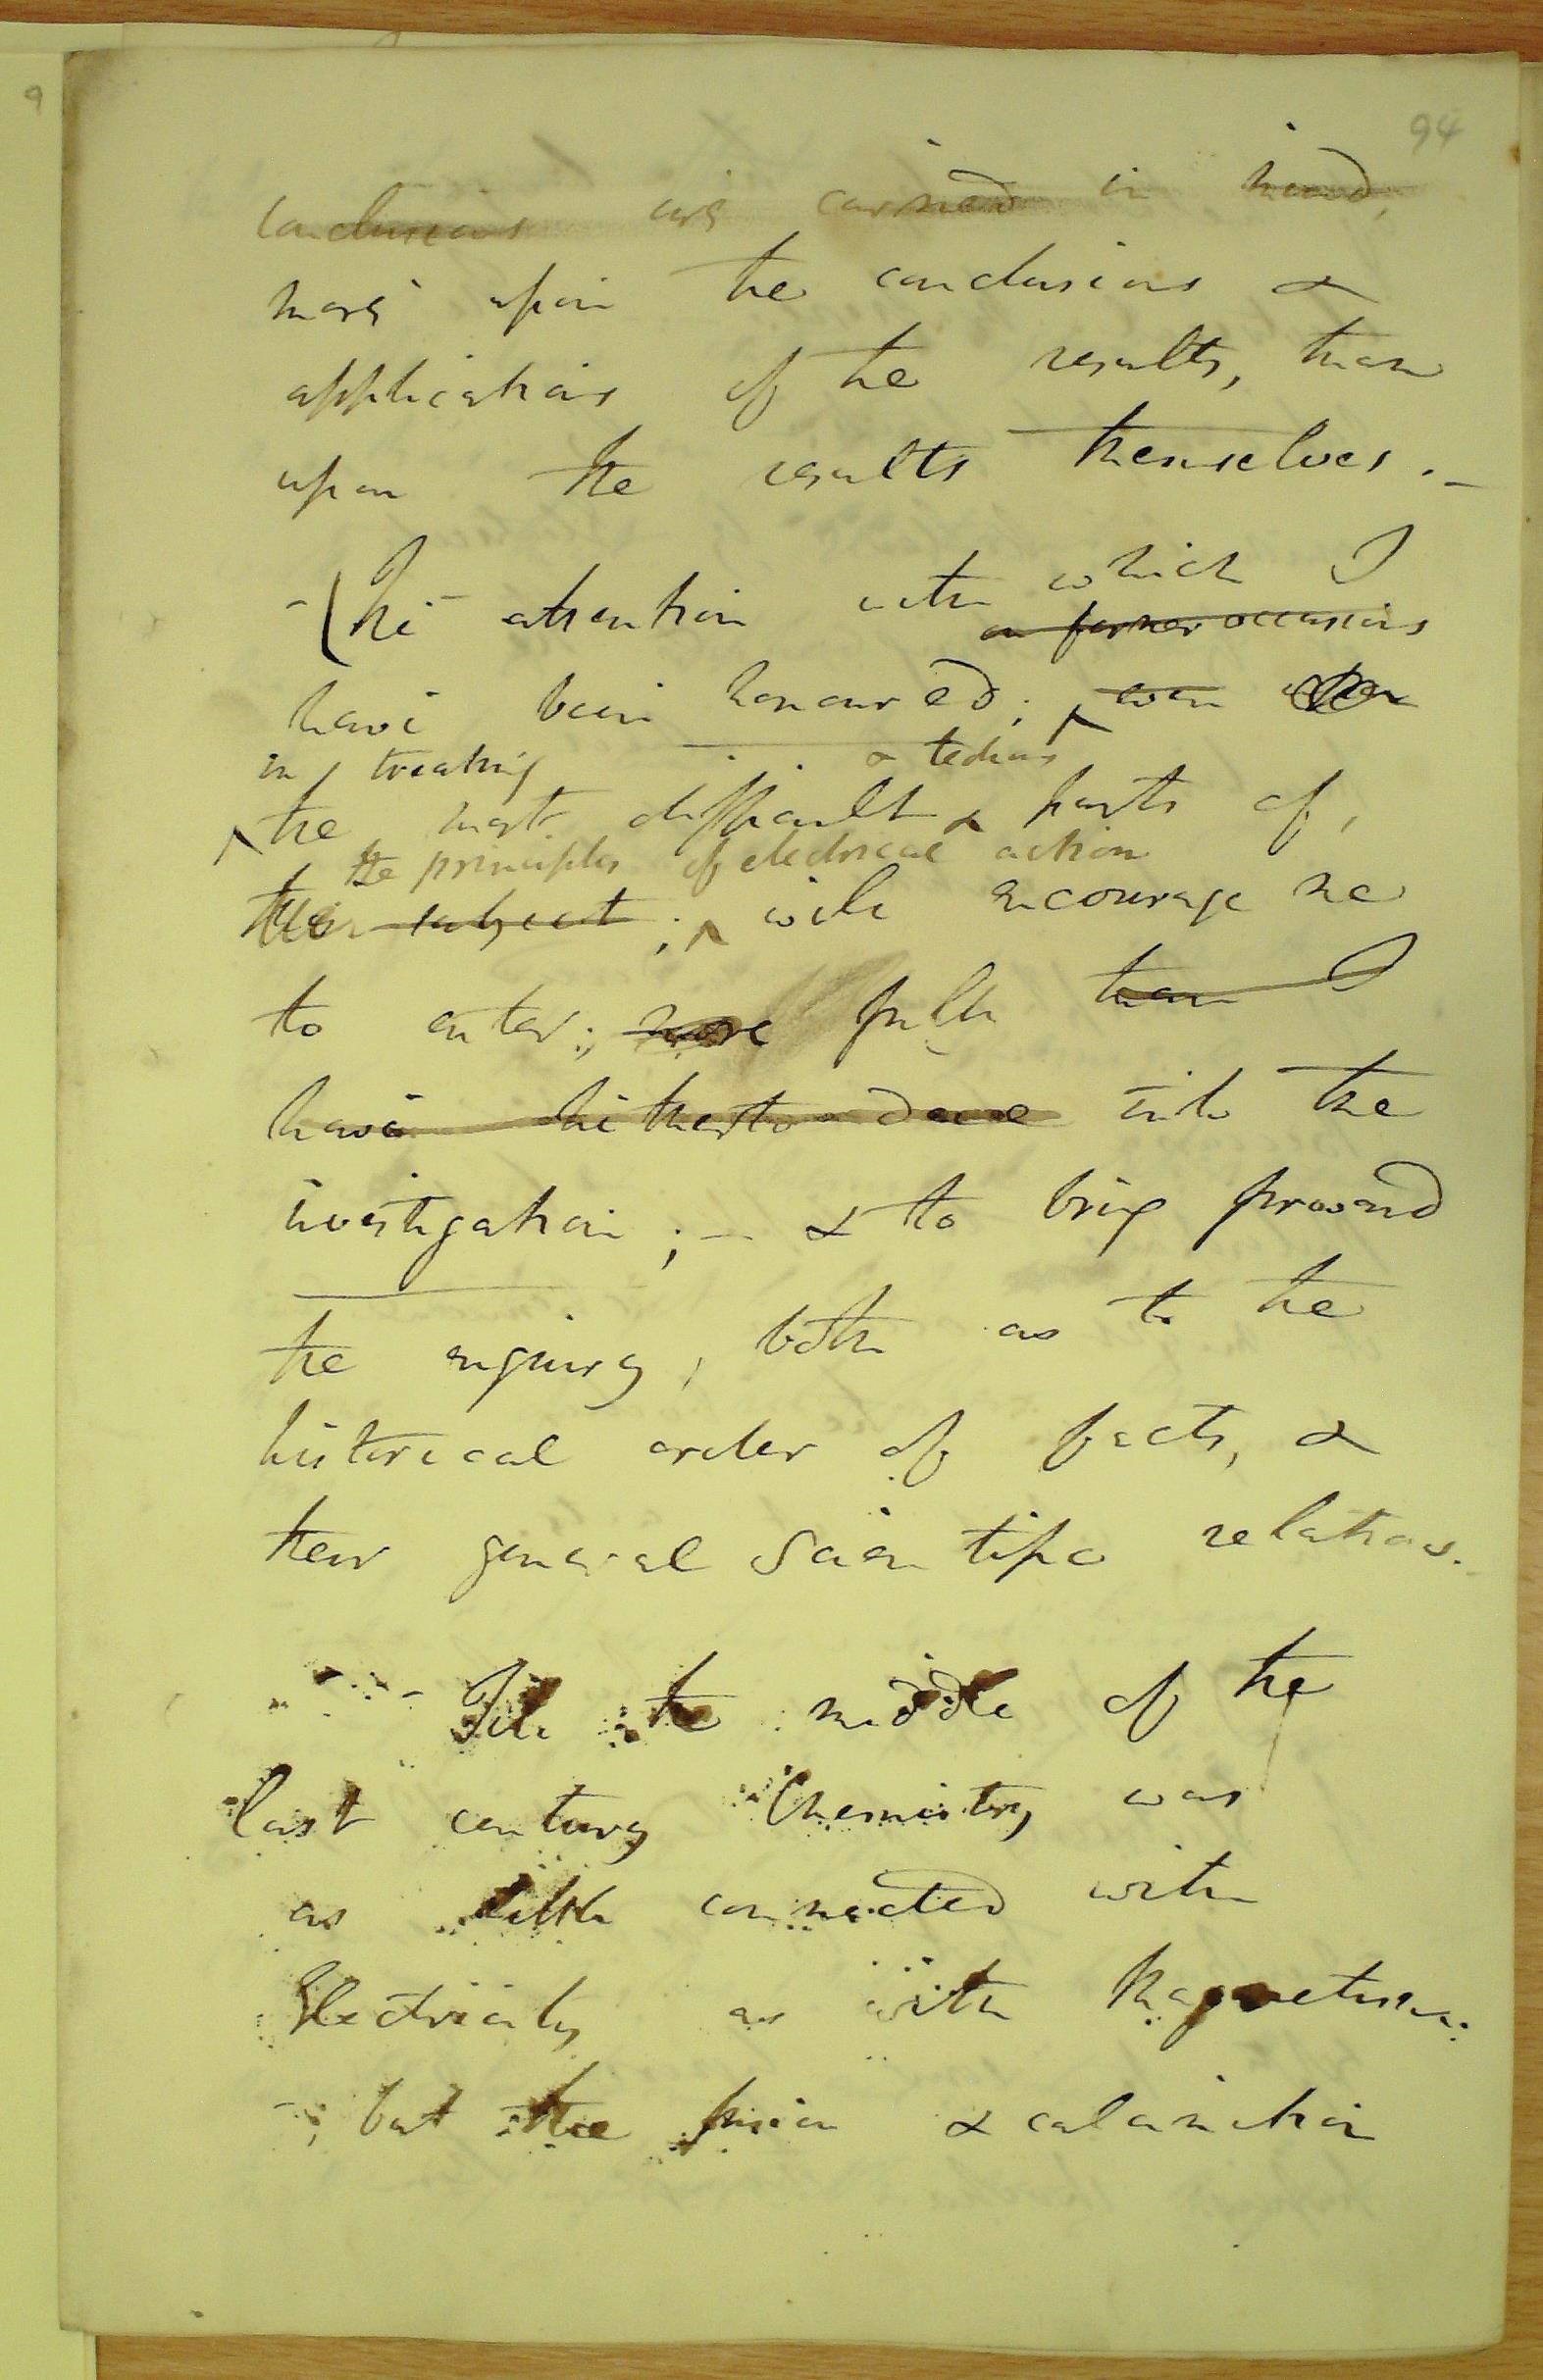 94
conclusions are carried in hand,
more upon the conclusions &
applications of the results, than
upon the results themselves. –
– The attention with which I
on former occasions
have been honoured; even when
in treating & tedious
the most difficult parts of,
the principles of electrical action
this subject; will encourage me
to enter; more fully than I
have hitherto done into the
investigation; – & to bring forward
the enquiry, both as to the
historical order of facts, &
their general Scientific relations.
– Till the middle of the
last century Chemistry was
as little connected with
Electricity as with Magnetism.
–; but the fusion & calcination